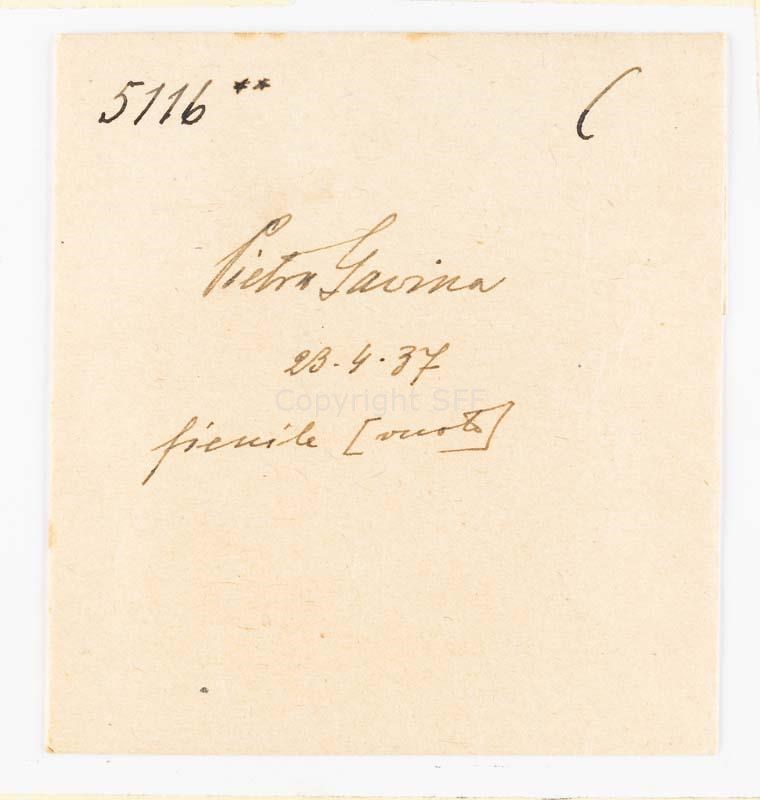 5116 ** (
Pietra Gavina
23.4.37
Copyright SFF
fienile [vuoto]